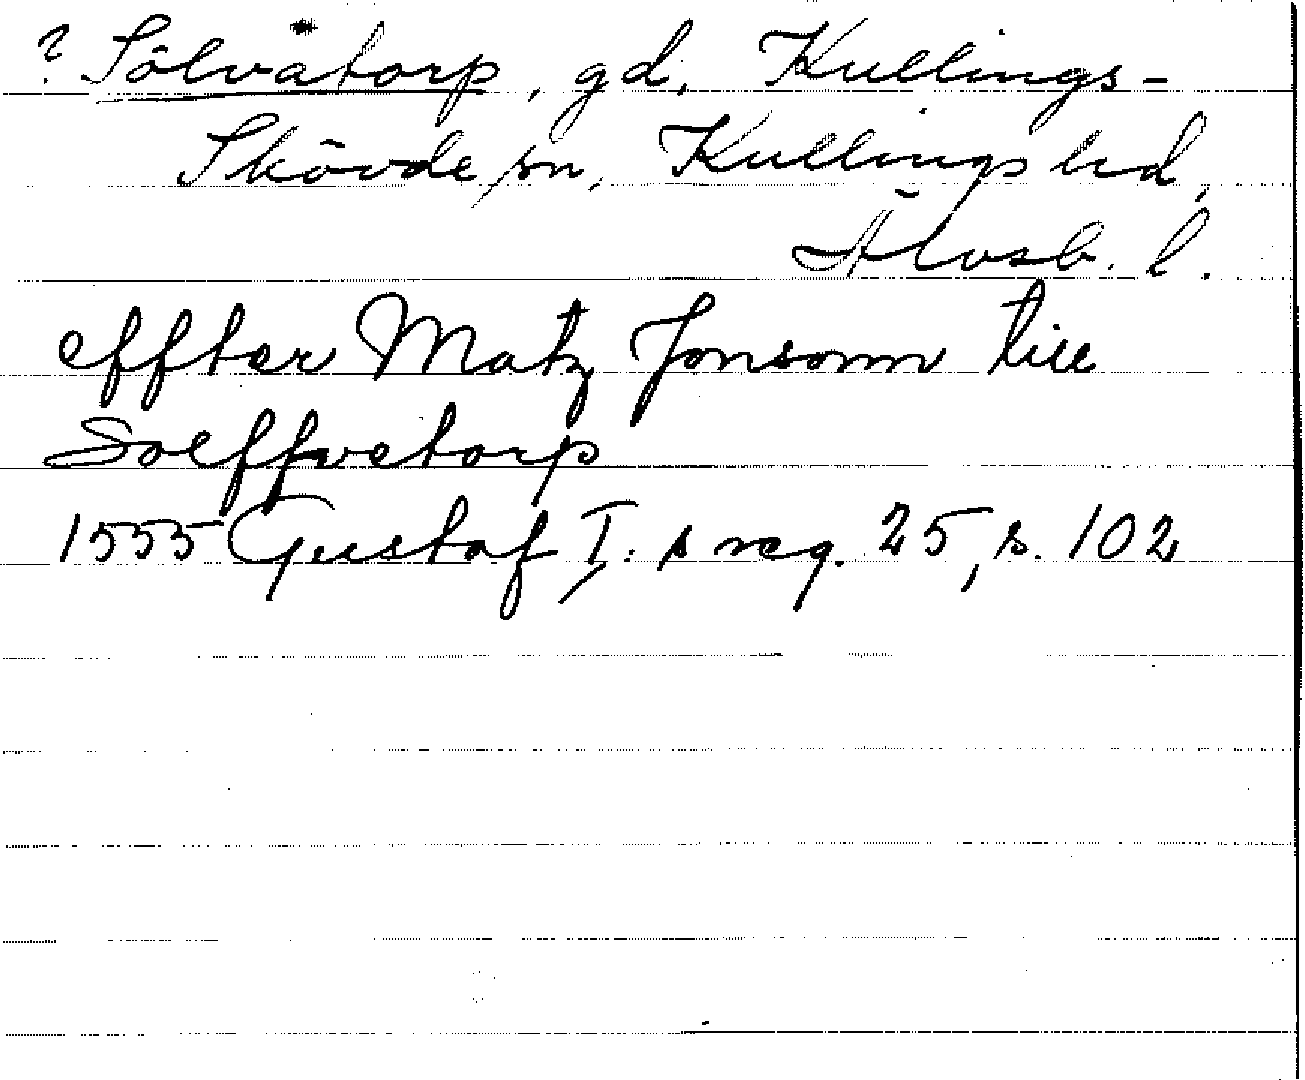 ? Sölvätorp, gd, Kullings-
Skövde sn, Kullings hd,
Älvsb. l.
effter Matz Jonsonn till
Soelffvetorp
1555 Gustaf I:s reg. 25, s. 102